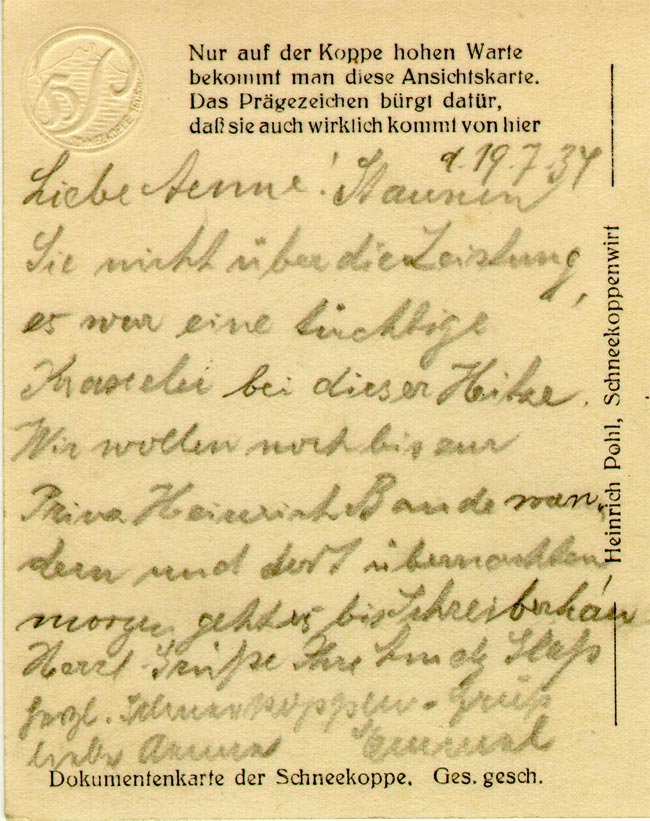 Nur auf der Koppe hohen Warte
bekommt man diese Ansichtskarte.
Das Prägezeichen bürgt dafür,
daß sie auch wirklich kommt von hier
d. 19.7.34
Liebe Aenne! Staunen
Sie nicht über die Leistung,
es war eine tüchtige
Kraxelei bei dieser Hitze.
Wir wollen noch bis zur
Prinz Heinrich Baude wan-
dern und dort übernachten
morgen geht es bis Schreiberhau
Herzl. Grüße Ihre
herzl. Schneekoppen-Gruß
liebe
Dokumentenkarte der Schneekoppe. Ges. gesch.
Heinrich Pohl, Schneekoppenwirt